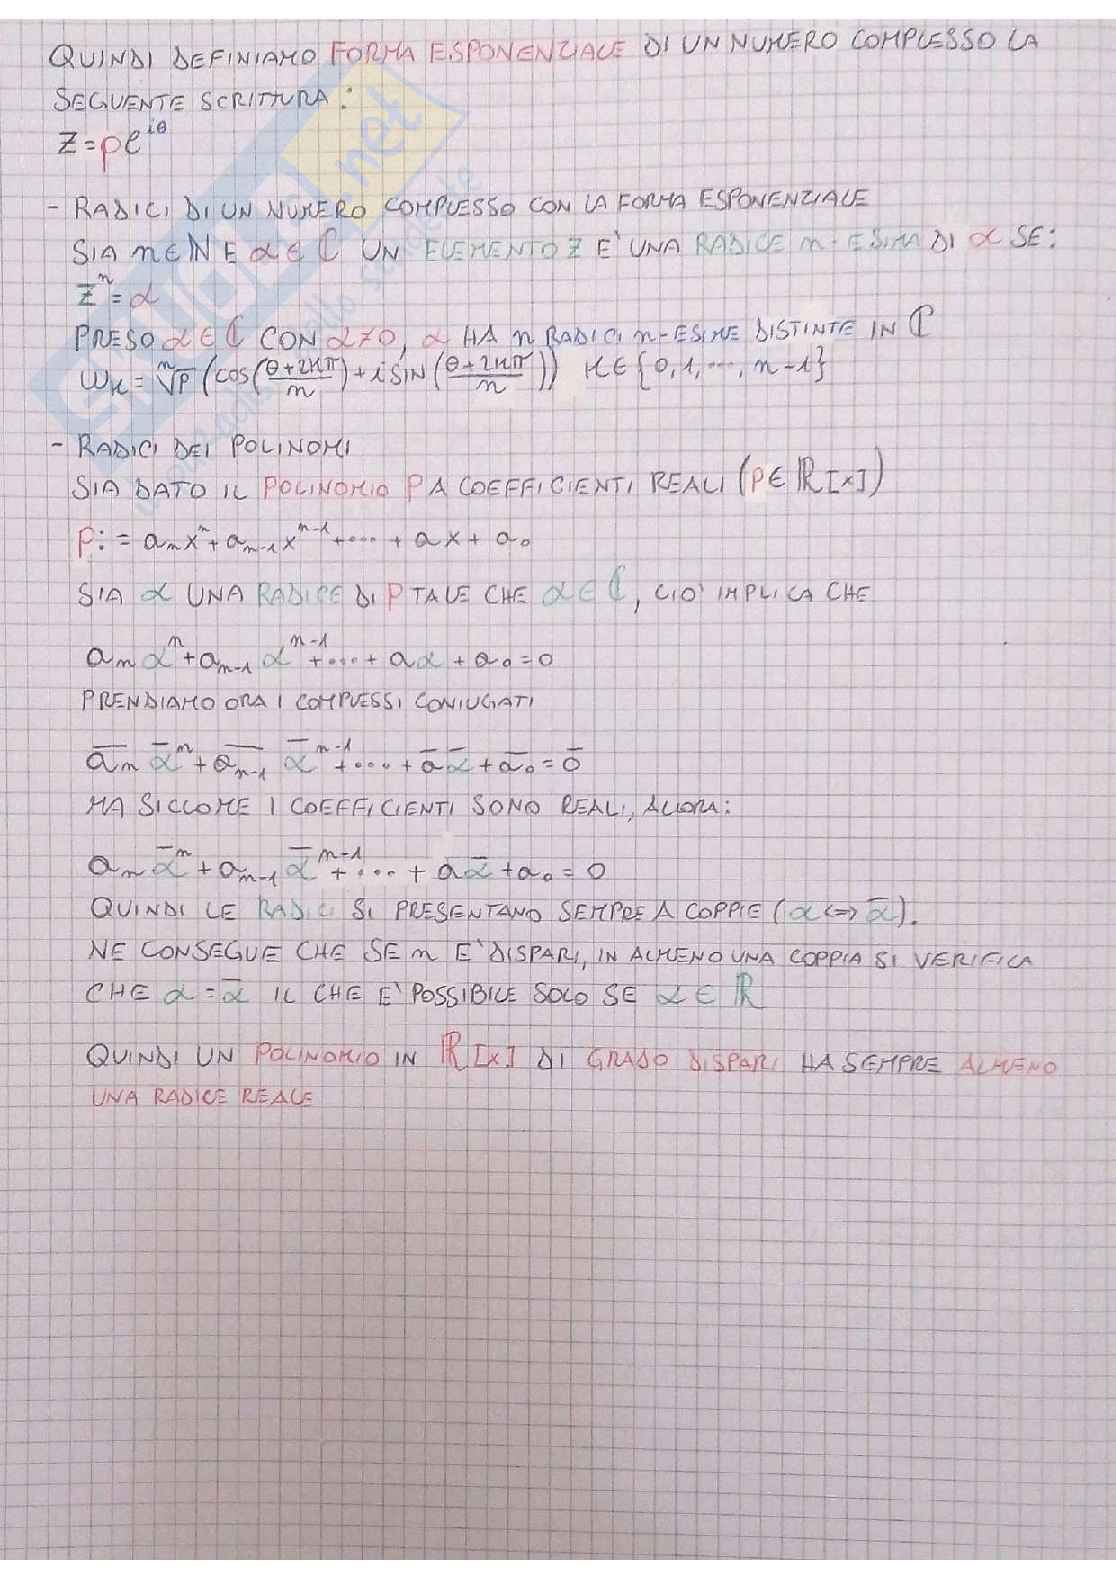 QUINDI DEFINIAMO FORMA ESPONENZIALE DI UN NUMERO COMPLESSO LA
SEGUENTE SCRITTURA:
Z=ρe^{iθ}
- RADICI DI UN NUMERO COMPLESSO CON LA FORMA ESPONENZIALE
SIA n∈ℕ E α∈ℂ UN ELEMENTO Z E' UNA RADICE n-ESIMA DI α SE:
Z^n=α
PRESO α∈ℂ CON α≠0, α HA n RADICI n-ESIME DISTINTE IN ℂ
ω_k = ⁿ√ρ (cos((θ+2kπ)/n)+i SIN((θ+2kπ)/n)) k∈{0,1,...,n-1}
- RADICI DEI POLINOMI
SIA DATO IL POLINOMIO P A COEFFICIENTI REALI (P∈ℝ[x])
P:= a_n x^n + a_{n-1} x^{n-1} +....+ ax + a_0
SIA α UNA RADICE DI P TALE CHE α∈ℂ, CIO' IMPLICA CHE
a_n α^n + a_{n-1} α^{n-1} +....+ aα + a_0 = 0
PRENDIAMO ORA I COMPLESSI CONIUGATI
a̅_n α̅^n + a̅_{n-1} α̅^{n-1} +....+ a̅ α̅ + a̅_0 = 0̅
MA SICCOME I COEFFICIENTI SONO REALI, ALLORA:
a_n α̅^n + a_{n-1} α̅^{n-1} +....+ aα̅ + a_0 = 0
QUINDI LE RADICI SI PRESENTANO SEMPRE A COPPIE (α<=>α̅).
NE CONSEGUE CHE SE n E' DISPARI, IN ALMENO UNA COPPIA SI VERIFICA
CHE α=α̅ IL CHE E' POSSIBILE SOLO SE α∈ℝ
QUINDI UN POLINOMIO IN ℝ[x] DI GRADO DISPARI HA SEMPRE ALMENO
UNA RADICE REALE